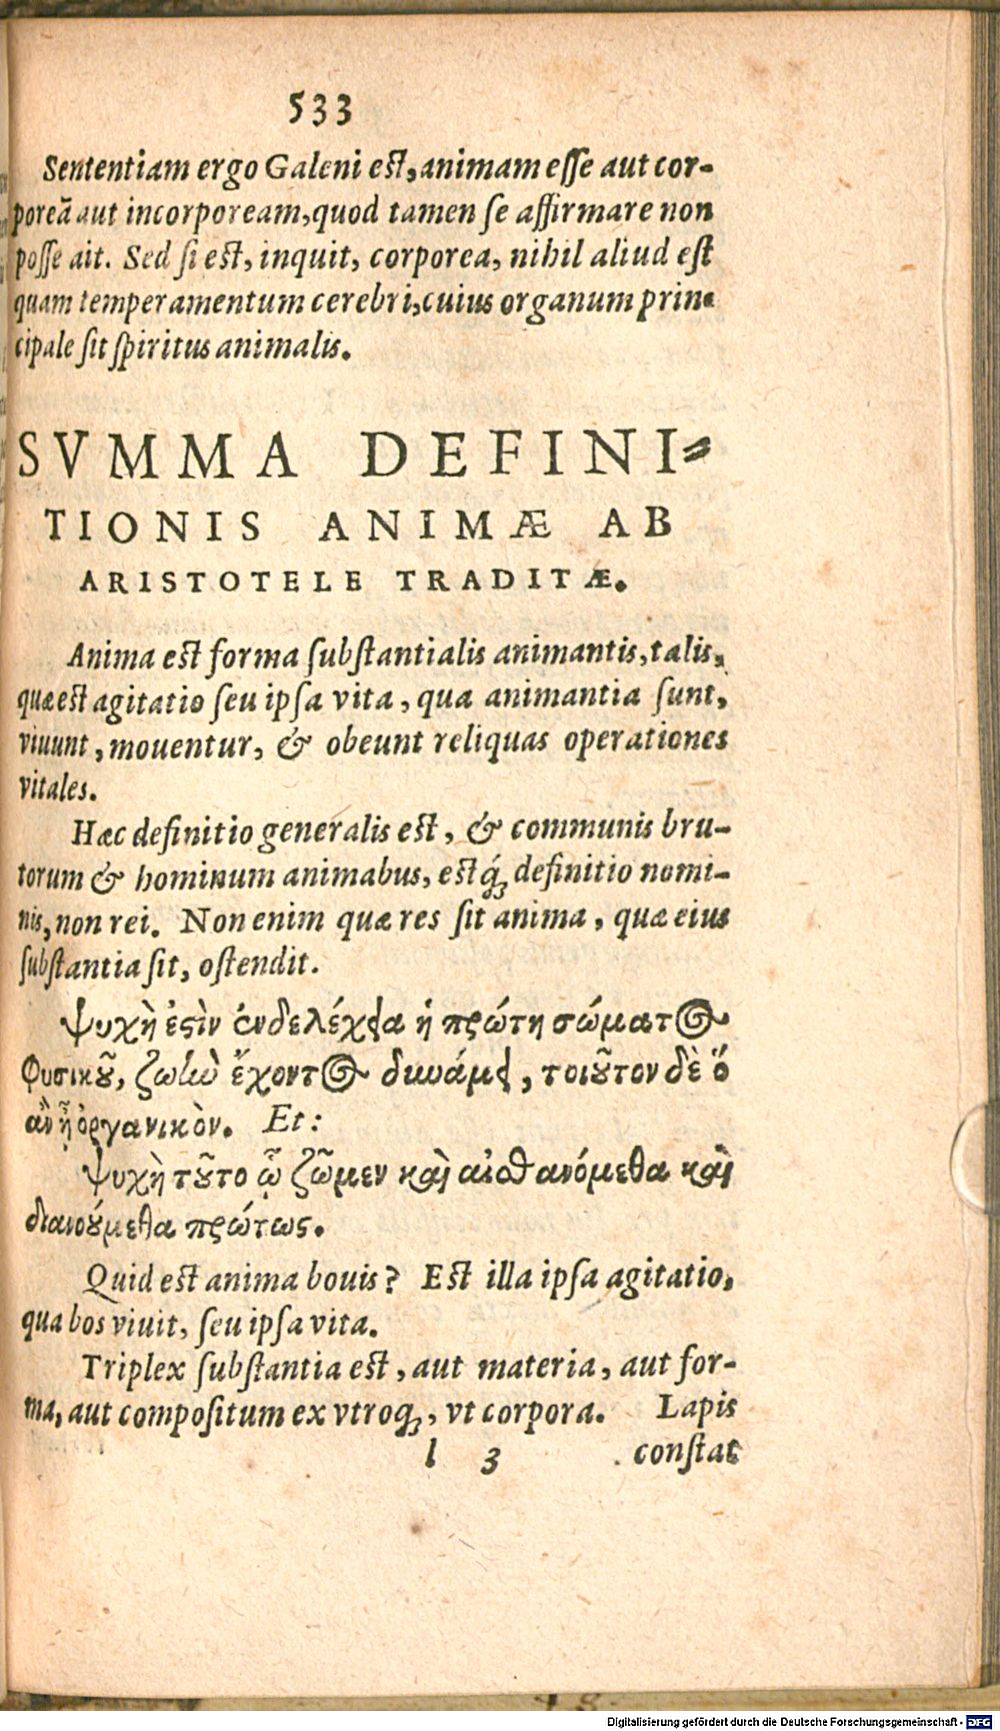 533
Sententiam ergo Galeni est, animam esse aut cor-
poreā aut incorpoream, quod tamen se affirmare non
posse ait. Sed si est, inquit, corporea, nihil aliud est
quam temperamentum cerebri, cuius organum prin-
cipale sit spiritus animalis.
SVMMA DEFINI-
TIONIS ANIMÆ AB
ARISTOTELE TRADITÆ.
Anima est forma substantialis animantis, talis,
quæ est agitatio seu ipsa vita, qua animantia sunt,
viuunt, mouentur, & obeunt reliquas operationes
vitales.
Hæc definitio generalis est, & communis bru-
torum & hominum animabus, estq́; definitio nomi-
nis, non rei. Non enim quæ res sit anima, quæ eius
substantia sit, ostendit.
Ψυχὴ ἐϛὶν ἐνδελέχεια ἡ πρώτη σώματος
φυσικοῦ, ζωὴν ἔχοντος δυνάμει, τοιοῦτον δὲ ὅ
ἂν ᾖ ὀργανικὸν. Et:
Ψυχὴ τοῦτο ᾧ ζῶμεν καὶ αἰσθανόμεθα καὶ
διανούμεθα πρώτως.
Quid est anima bouis? Est illa ipsa agitatio,
qua bos viuit, seu ipsa vita.
Triplex substantia est, aut materia, aut for-
ma, aut compositum ex vtroq;, vt corpora. Lapis
l 3 constat
Digitalisierung gefördert durch die Deutsche Forschungsgemeinschaft - DFG